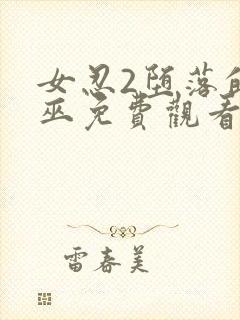 女忍2堕落的
巫免費觀看
雷春美